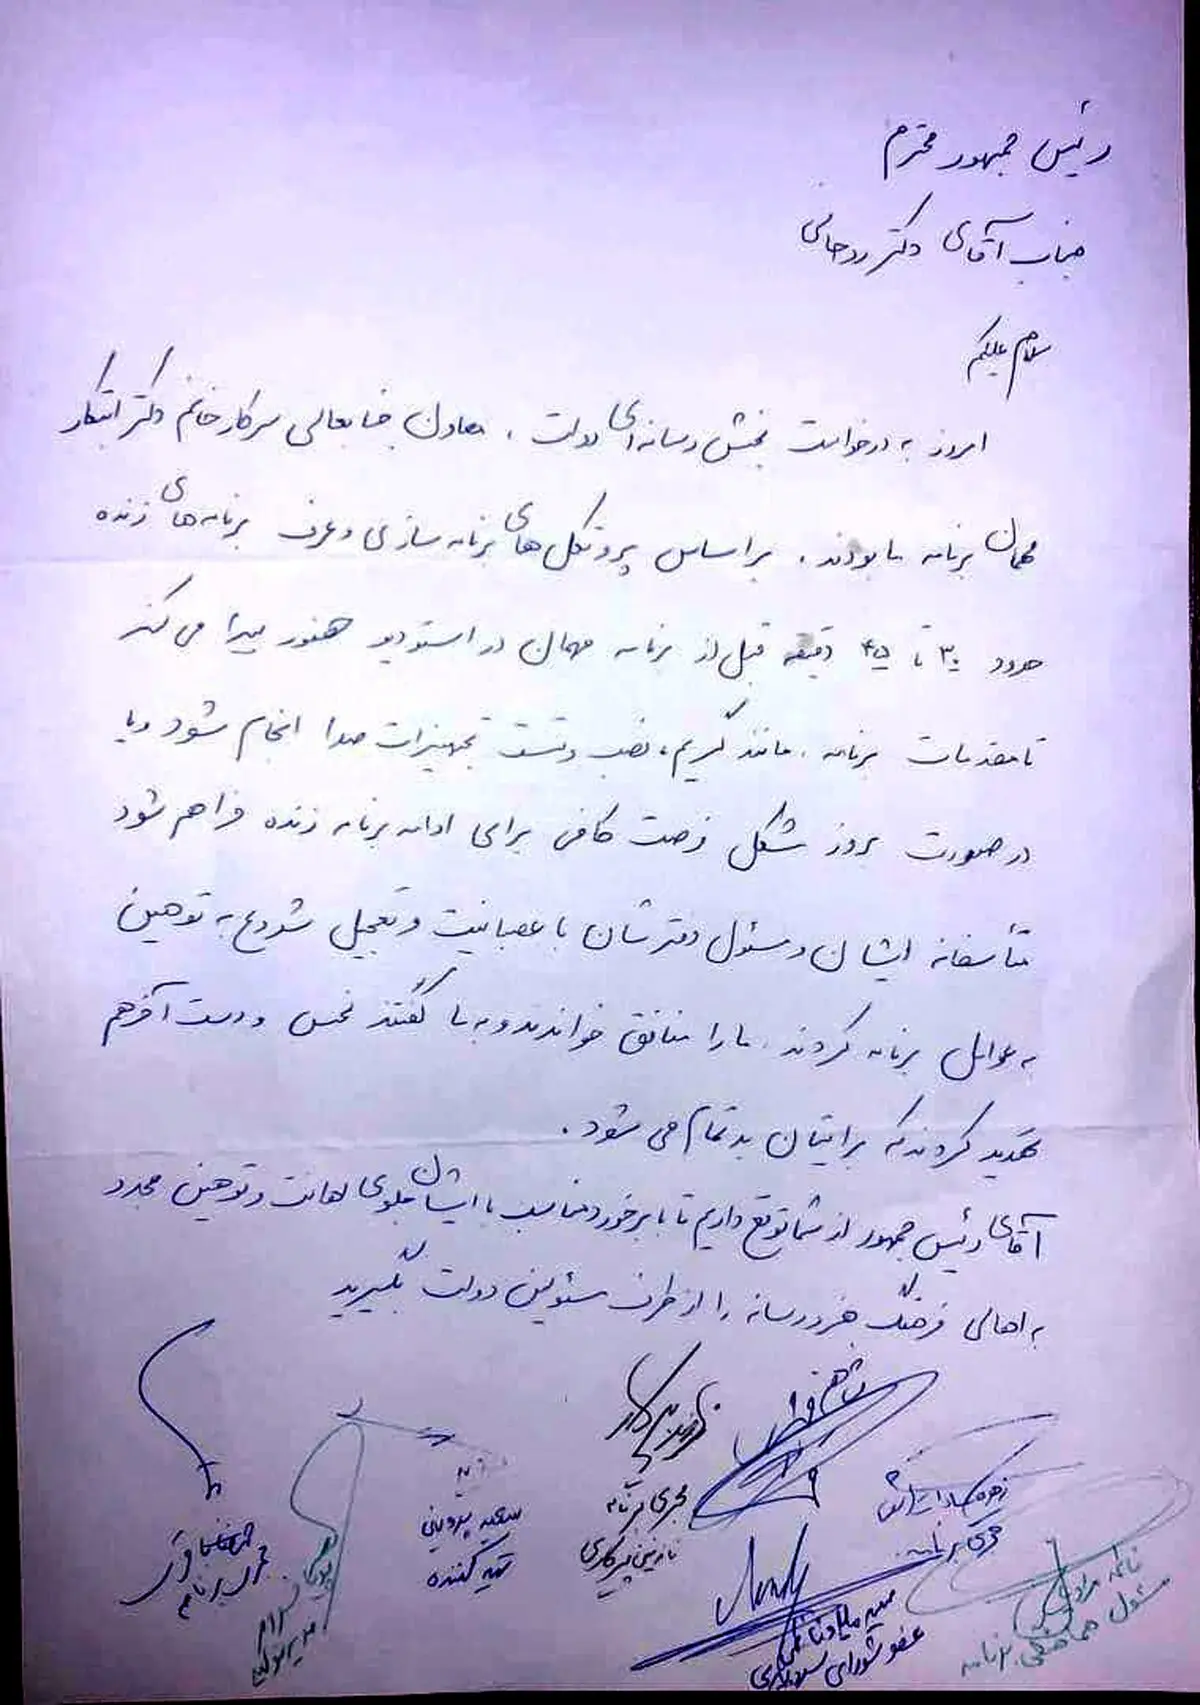 رئیس جمهور محترم
جناب آقای دکتر روحانی
سلام علیکم
امروز به درخواست بخش رسانه‌ای دولت، معاون جنابعالی سرکار خانم دکتر ابتکار
مهمان برنامه ما بودند. بر اساس پروتکل‌های برنامه سازی و عرف برنامه‌های زنده
حدود ۳۰ تا ۴۵ دقیقه قبل از برنامه مهمان در استودیو حضور پیدا می‌کند
تا مقدمات برنامه، مانند گریم، نصب و تست تجهیزات صدا انجام شود و یا
در صورت بروز مشکل فرصت کافی برای ادامه برنامه زنده فراهم شود
متأسفانه ایشان و مسئول دفترشان با عصبانیت و تعجیل شروع به توهین
به عوامل برنامه کردند. ما را منافق خواندند و به ما گفتند نجس و دست آخر هم
تهدید کردند که برایتان بد تمام می‌شود.
آقای رئیس جمهور از شما توقع داریم تا با برخورد مناسب با ایشان جلوی اهانت و توهین مجدد
به اهالی فرهنگ هنر و رسانه را از طرف مسئولین دولت بگیرید
مجری برنامه
نازنین پیرکاری
مجری برنامه
سعید پروینی
تهیه کننده
مجری برنامه
عضو شورای
مسئول هماهنگی برنامه
مدیر تولید